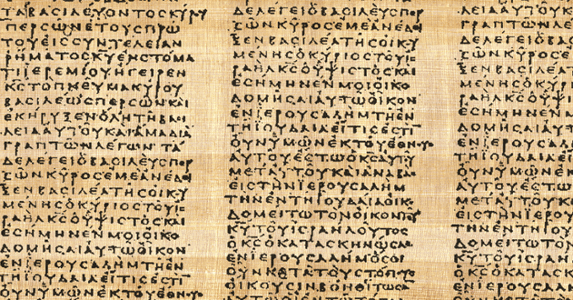 ΤΑΒΑϹΙΛΕΥΟΝΤΟϹΚΥΡΟΥ
ΠΕΡϹΩΝΕΤΟΥϹΠΡΩ
ΤΟΥΕΙϹϹΥΝΤΕΛΕΙΑΝ
ΡΗΜΑΤΟϹΚΥΕΝϹΤΟΜΑ
ΤΙΙΕΡΕΜΙΟΥΗΓΕΙΡΕΝ
ΚϹΤΟΠΝΕΥΜΑΚΥΡΟΥ
ΒΑϹΙΛΕΩϹΠΕΡϹΩΝΚΑΙ
ΕΚΗΡΥΞΕΝΟΛΗΤΗΒΑϹΙ
ΛΕΙΑΑΥΤΟΥΚΑΙΑΜΑΔΙΑ
ΓΡΑΠΤΩΝΛΕΓΩΝΤΑ
ΔΕΛΕΓΕΙΟΒΑϹΙΛΕΥϹΠΕΡ
ϹΩΝΚΥΡΟϹΕΜΕΑΝΕΔΕΙ
ΞΕΝΒΑϹΙΛΕΑΤΗϹΟΙΚΟΥ
ΜΕΝΗϹΟΚΥΡΙΟϹΤΟΥΙϹ
ΡΑΗΛΚϹΟΥΨΙϹΤΟϹΚΑΙ
ΕϹΗΜΗΝΕΝΜΟΙΟΙΚΟ
ΔΟΜΗϹΑΙΑΥΤΩΟΙΚΟΝ
ΕΝΙΕΡΟΥϹΑΛΗΜΤΗΕΝ
ΤΗΙΟΥΔΑΙΑΕΙΤΙϹΕϹΤΙ
ΟΥΝΥΜΩΝΕΚΤΟΥΕΘΝΟΥ
ΔΕΛΕΓΕΙΟΒΑϹΙΛΕΥϹΠΕΡ
ϹΩΝΚΥΡΟϹΕΜΕΑΝΕΔΕΙ
ΞΕΝΒΑϹΙΛΕΑΤΗϹΟΙΚΟΥ
ΜΕΝΗϹΟΚΥΡΙΟϹΤΟΥΙϹ
ΡΑΗΛΚϹΟΥΨΙϹΤΟϹΚΑΙ
ΕϹΗΜΗΝΕΝΜΟΙΟΙΚΟ
ΔΟΜΗϹΑΙΑΥΤΩΟΙΚΟΝ
ΕΝΙΕΡΟΥϹΑΛΗΜΤΗΕΝ
ΤΗΙΟΥΔΑΙΑΕΙΤΙϹΕϹΤΙ
ΟΥΝΥΜΩΝΕΚΤΟΥΕΘΝΟΥ
ΑΥΤΟΥΕϹΤΩΟΚϹΑΥΤΟΥ
ΜΕΤΑΥΤΟΥΚΑΙΑΝΑΒΑϹ
ΕΙϹΤΗΝΙΕΡΟΥϹΑΛΗΜ
ΤΗΝΕΝΤΗΙΟΥΔΑΙΑΟΙΚΟ
ΔΟΜΕΙΤΩΤΟΝΟΙΚΟΝΤΟΥ
ΚΥΤΟΥΙϹΡΑΗΛΟΥΤΟϹ
ΟΚϹΟΚΑΤΑϹΚΗΝΩϹΑϹ
ΕΝΙΕΡΟΥϹΑΛΗΜΟϹΟΙ
ΟΥΝΚΑΤΑΤΟΥϹΤΟΠΟΥϹ
ΛΕΙΑΑΥΤΟΥΚΑΙ
ΓΡΑΠΤΩΝΛΕΓ
ΔΕΛΕΓΕΙΟΒΑϹΙ
ϹΩΝΚΥΡΟϹΕΜΕ
ΞΕΝΒΑϹΙΛΕΑΤ
ΜΕΝΗϹΟΚΥΡΙΟ
ΡΑΗΛΚϹΟΥΨΙϹ
ΕϹΗΜΗΝΕΝΜ
ΔΟΜΗϹΑΙΑΥΤ
ΕΝΙΕΡΟΥϹΑΛΗ
ΤΗΙΟΥΔΑΙΑΕΙ
ΟΥΝΥΜΩΝΕΚΤ
ΑΥΤΟΥΕϹΤΩΟ
ΜΕΤΑΥΤΟΥΚΑΙ
ΕΙϹΤΗΝΙΕΡΟΥ
ΤΗΝΕΝΤΗΙΟΥ
ΔΟΜΕΙΤΩΤΟΝ
ΚΥΤΟΥΙϹΡΑΗΛ
ΟΚϹΟΚΑΤΑϹΚ
ΕΝΙΕΡΟΥϹΑΛΗ